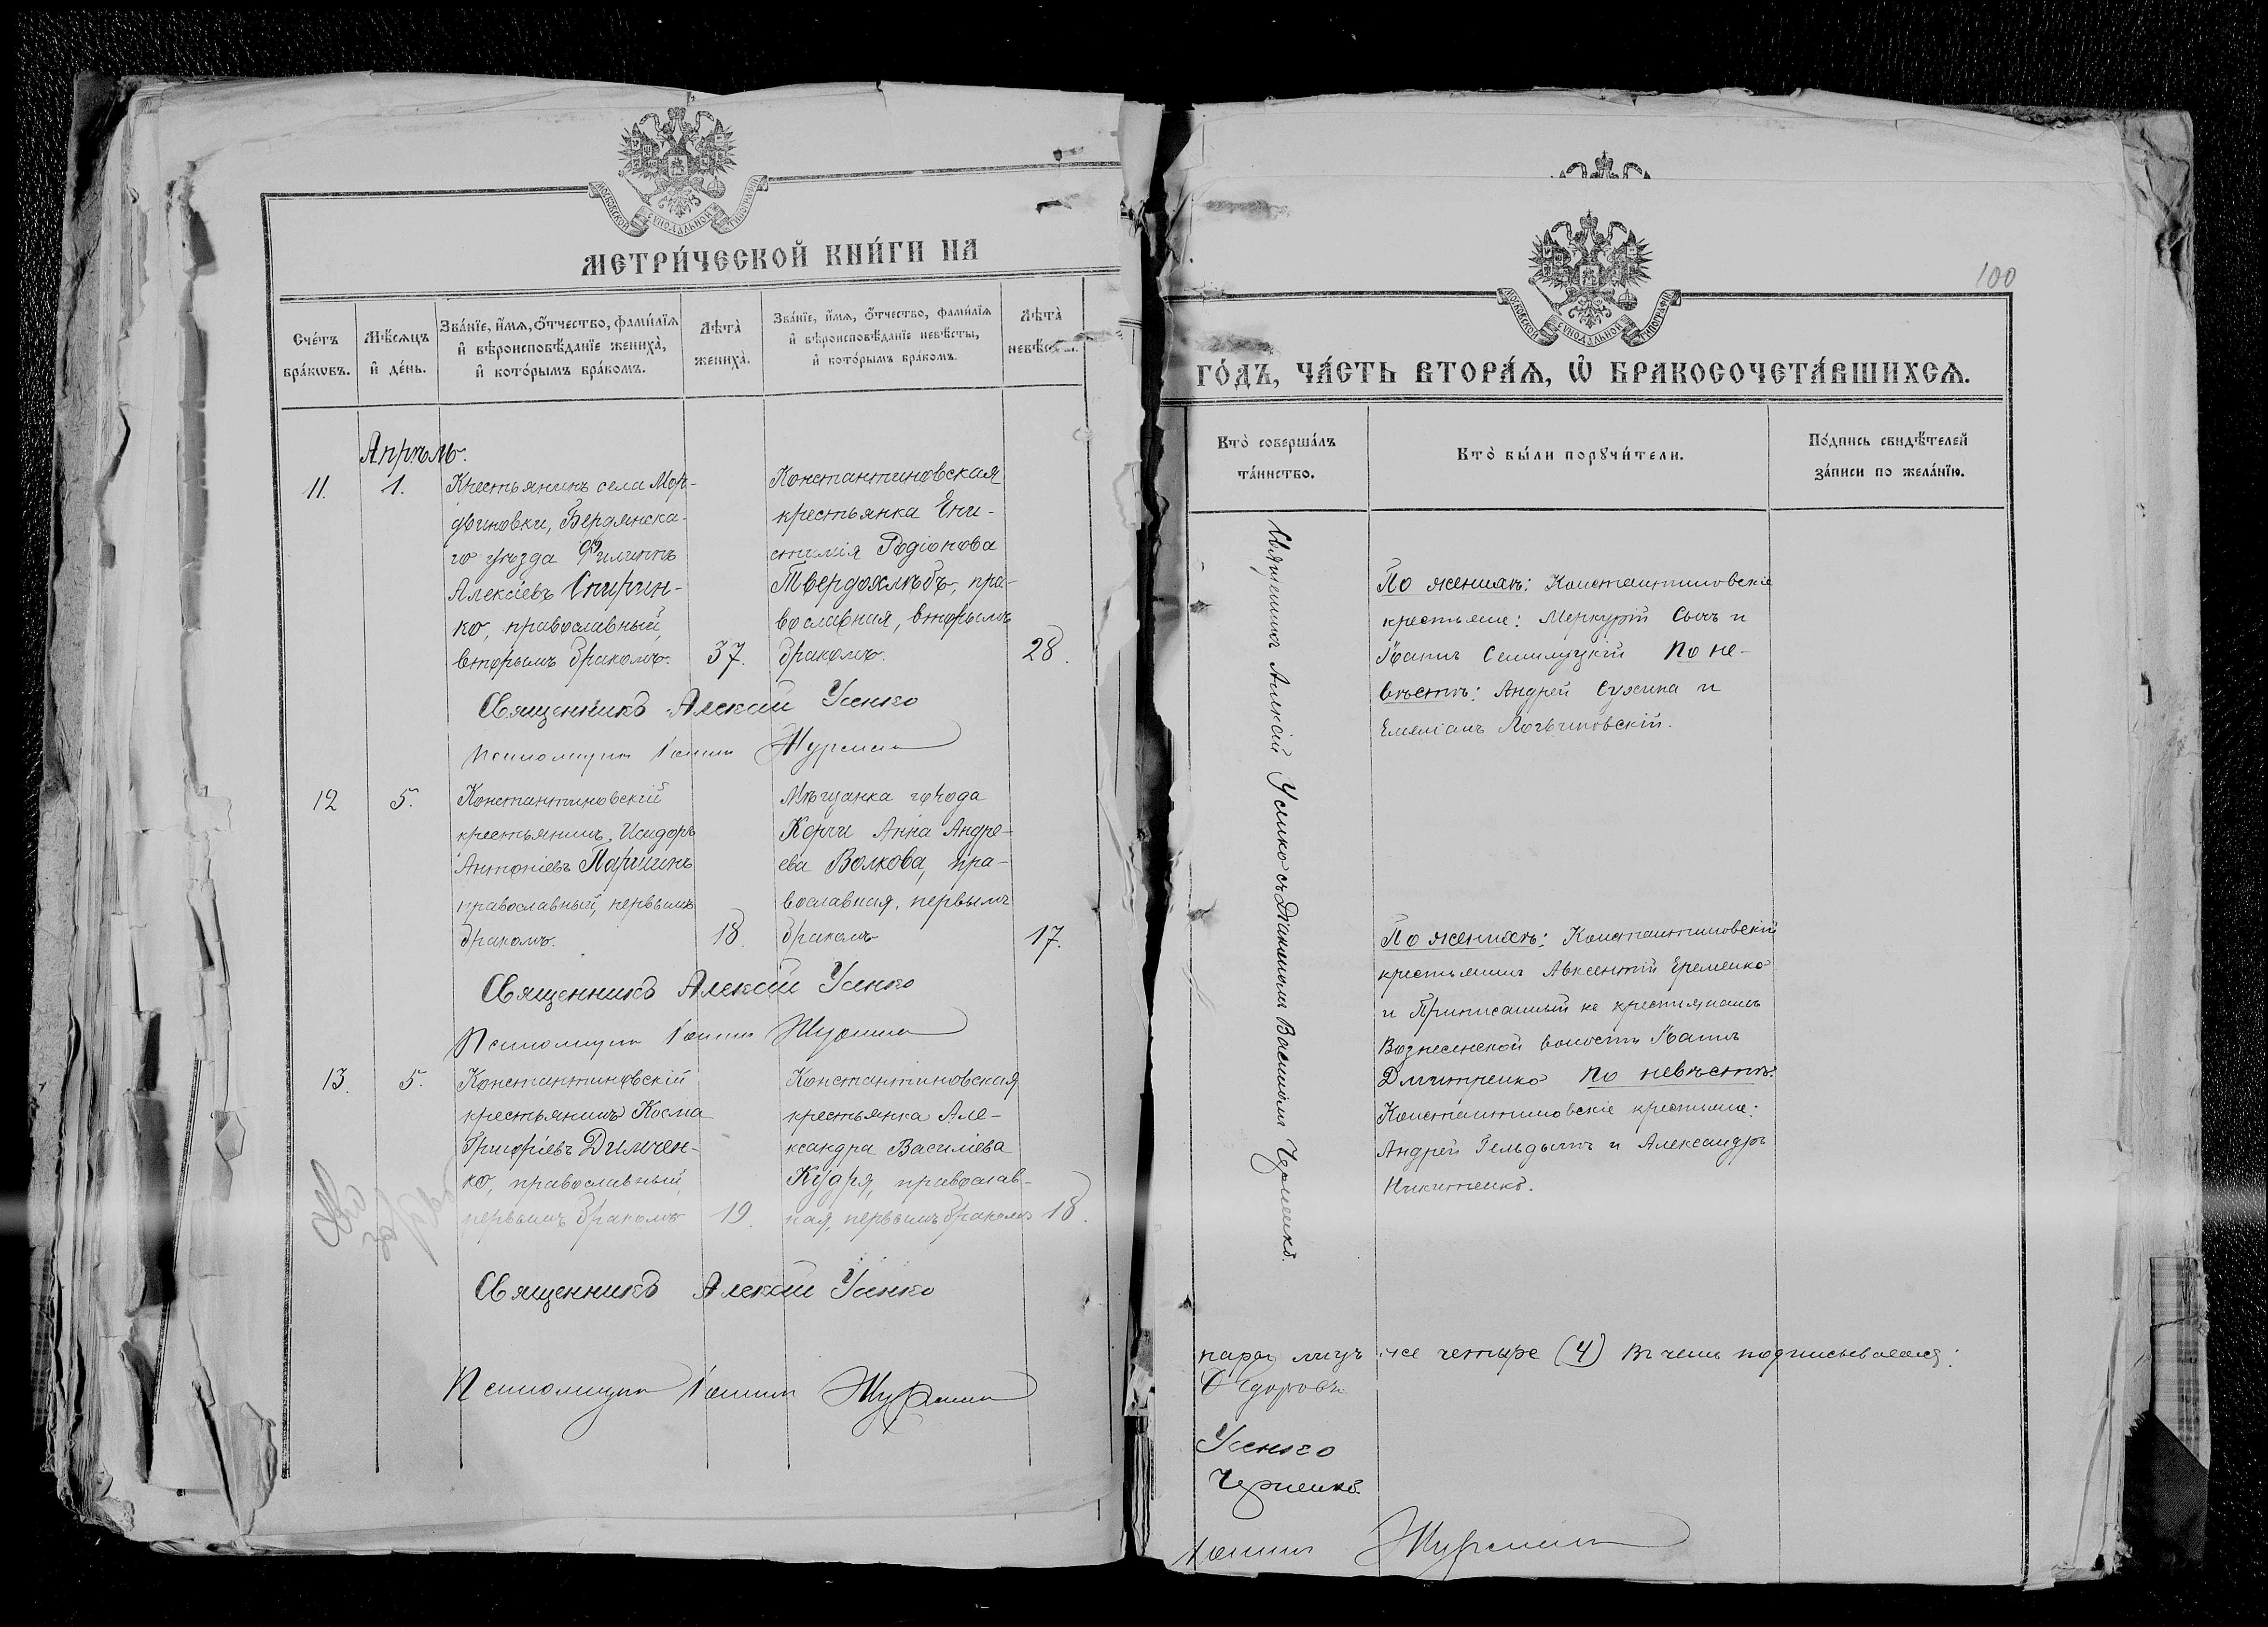 МОСКОВСКОЙ СѴНОДАЛЬНОЙ ТИПОГРАФІИ
МЕТРИ́ЧЕСКОЙ КНИ́ГИ НА
Сче́тъ бра́кѡвъ.
Мѣ́сѧцъ и҆ де́нь.
Зва́нїе, и҆́мѧ, ѻ҆́тчество, фами́лїѧ
и҆ вѣроисповѣ́данїе жениха̀,
и҆ кото́рымъ бра́комъ.
Лѣта̀ жениха̀.
Зва́нїе, и҆́мѧ, ѻ҆́тчество, фами́лїѧ
и҆ вѣроисповѣ́данїе невѣ́сты,
и҆ кото́рымъ бра́комъ.
Лѣта̀
Апрѣль.
11. 1.
Крестьянинъ села Мор-
двиновки, Бердянска-
го уѣзда Филиппъ
Алексіевъ Спирин-
ко, православный,
вторымъ бракомъ. 37.
Константиновская
крестьянка Епи-
стимія Родіонова
Твердохлѣбъ, пра-
вославная, вторымъ
бракомъ. 28.
Священникъ Алексій Усенко
Псаломщикъ Іоаннъ
12 5.
Константиновскій
крестьянинъ, Исидоръ
Антоніевъ Паршинъ
православный, первымъ
бракомъ. 18.
Мѣщанка города
Керчи Анна Андре-
ева Волкова, пра-
вославная, первымъ
бракомъ 17.
Священникъ Алексій Усенко
Псаломщикъ Іоаннъ
13. 5.
Константиновскій
крестьянинъ Косма
Григоріевъ Димчен-
ко, православный,
первымъ бракомъ 19.
Константиновская
крестьянка Але-
ксандра Василіева
Кудря, православ-
ная, первымъ бракомъ 18.
Священникъ Алексій Усенко
Псаломщикъ Іоаннъ
100
МОСКОВСКОЙ СѴНОДАЛЬНОЙ ТИПОГРАФІИ
ГО́ДЪ, ЧА́СТЬ ВТОРА́Ѧ, Ѡ҆ БРАКОСОЧЕТА́ВШИХСѦ.
Кто̀ соверша́лъ
та́инство.
Кто̀ бы́ли порꙋчи́тели.
По́дпись свидѣ́телей
за́писи по жела́нїю.
Священникъ Алексій Усенко съ Діакономъ Василіемъ Черненко.
По женихѣ: Константиновскіе
крестьяне: Меркурій Сычъ и
Іоаннъ Семилуцкій По не-
вѣстѣ: Андрей Сухина и
Емеліанъ Логвиновскій.
По женихѣ: Константиновскій
крестьянинъ Авксентій Еременко
и Приписанный къ крестьянамъ
Вознесенской волости Іоаннъ
Дмитренко По невѣстѣ:
Константиновскіе крестьяне:
Андрей Гельдышъ и Александръ
Никитенко.
паръ лицъ же четыре (4) Въ чемъ подписываемся:
Усенко
Черненко
Іоаннъ